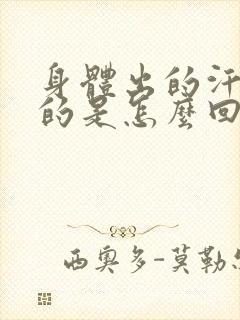 身體出的汗
的是怎麼回
西奧多-莫勒